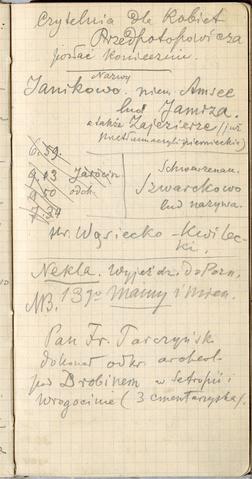 Czytelnia dla Kobiet
Przedpotopowicza
posłać koniecznie.
Nazwy
Janikowo. niem Amsee
lud Jamrza.
a także Zajezierze (już
6.59
9 13 Jarocin
4 50 odch.
7 34
Schwarzenau.
Szwarckowo
lud nazywa.
hr. Wąsiecko - Kwilec-
ki.
Nekla. Wyjeżdż. do Pozn.
NB. 13go Mamy i mien.
Pan Fr. Tarczyńsk
dokonał odkr. archeol.
pod Drobinem w Setropii i
Wrogocinie (3 cmentarzyska).